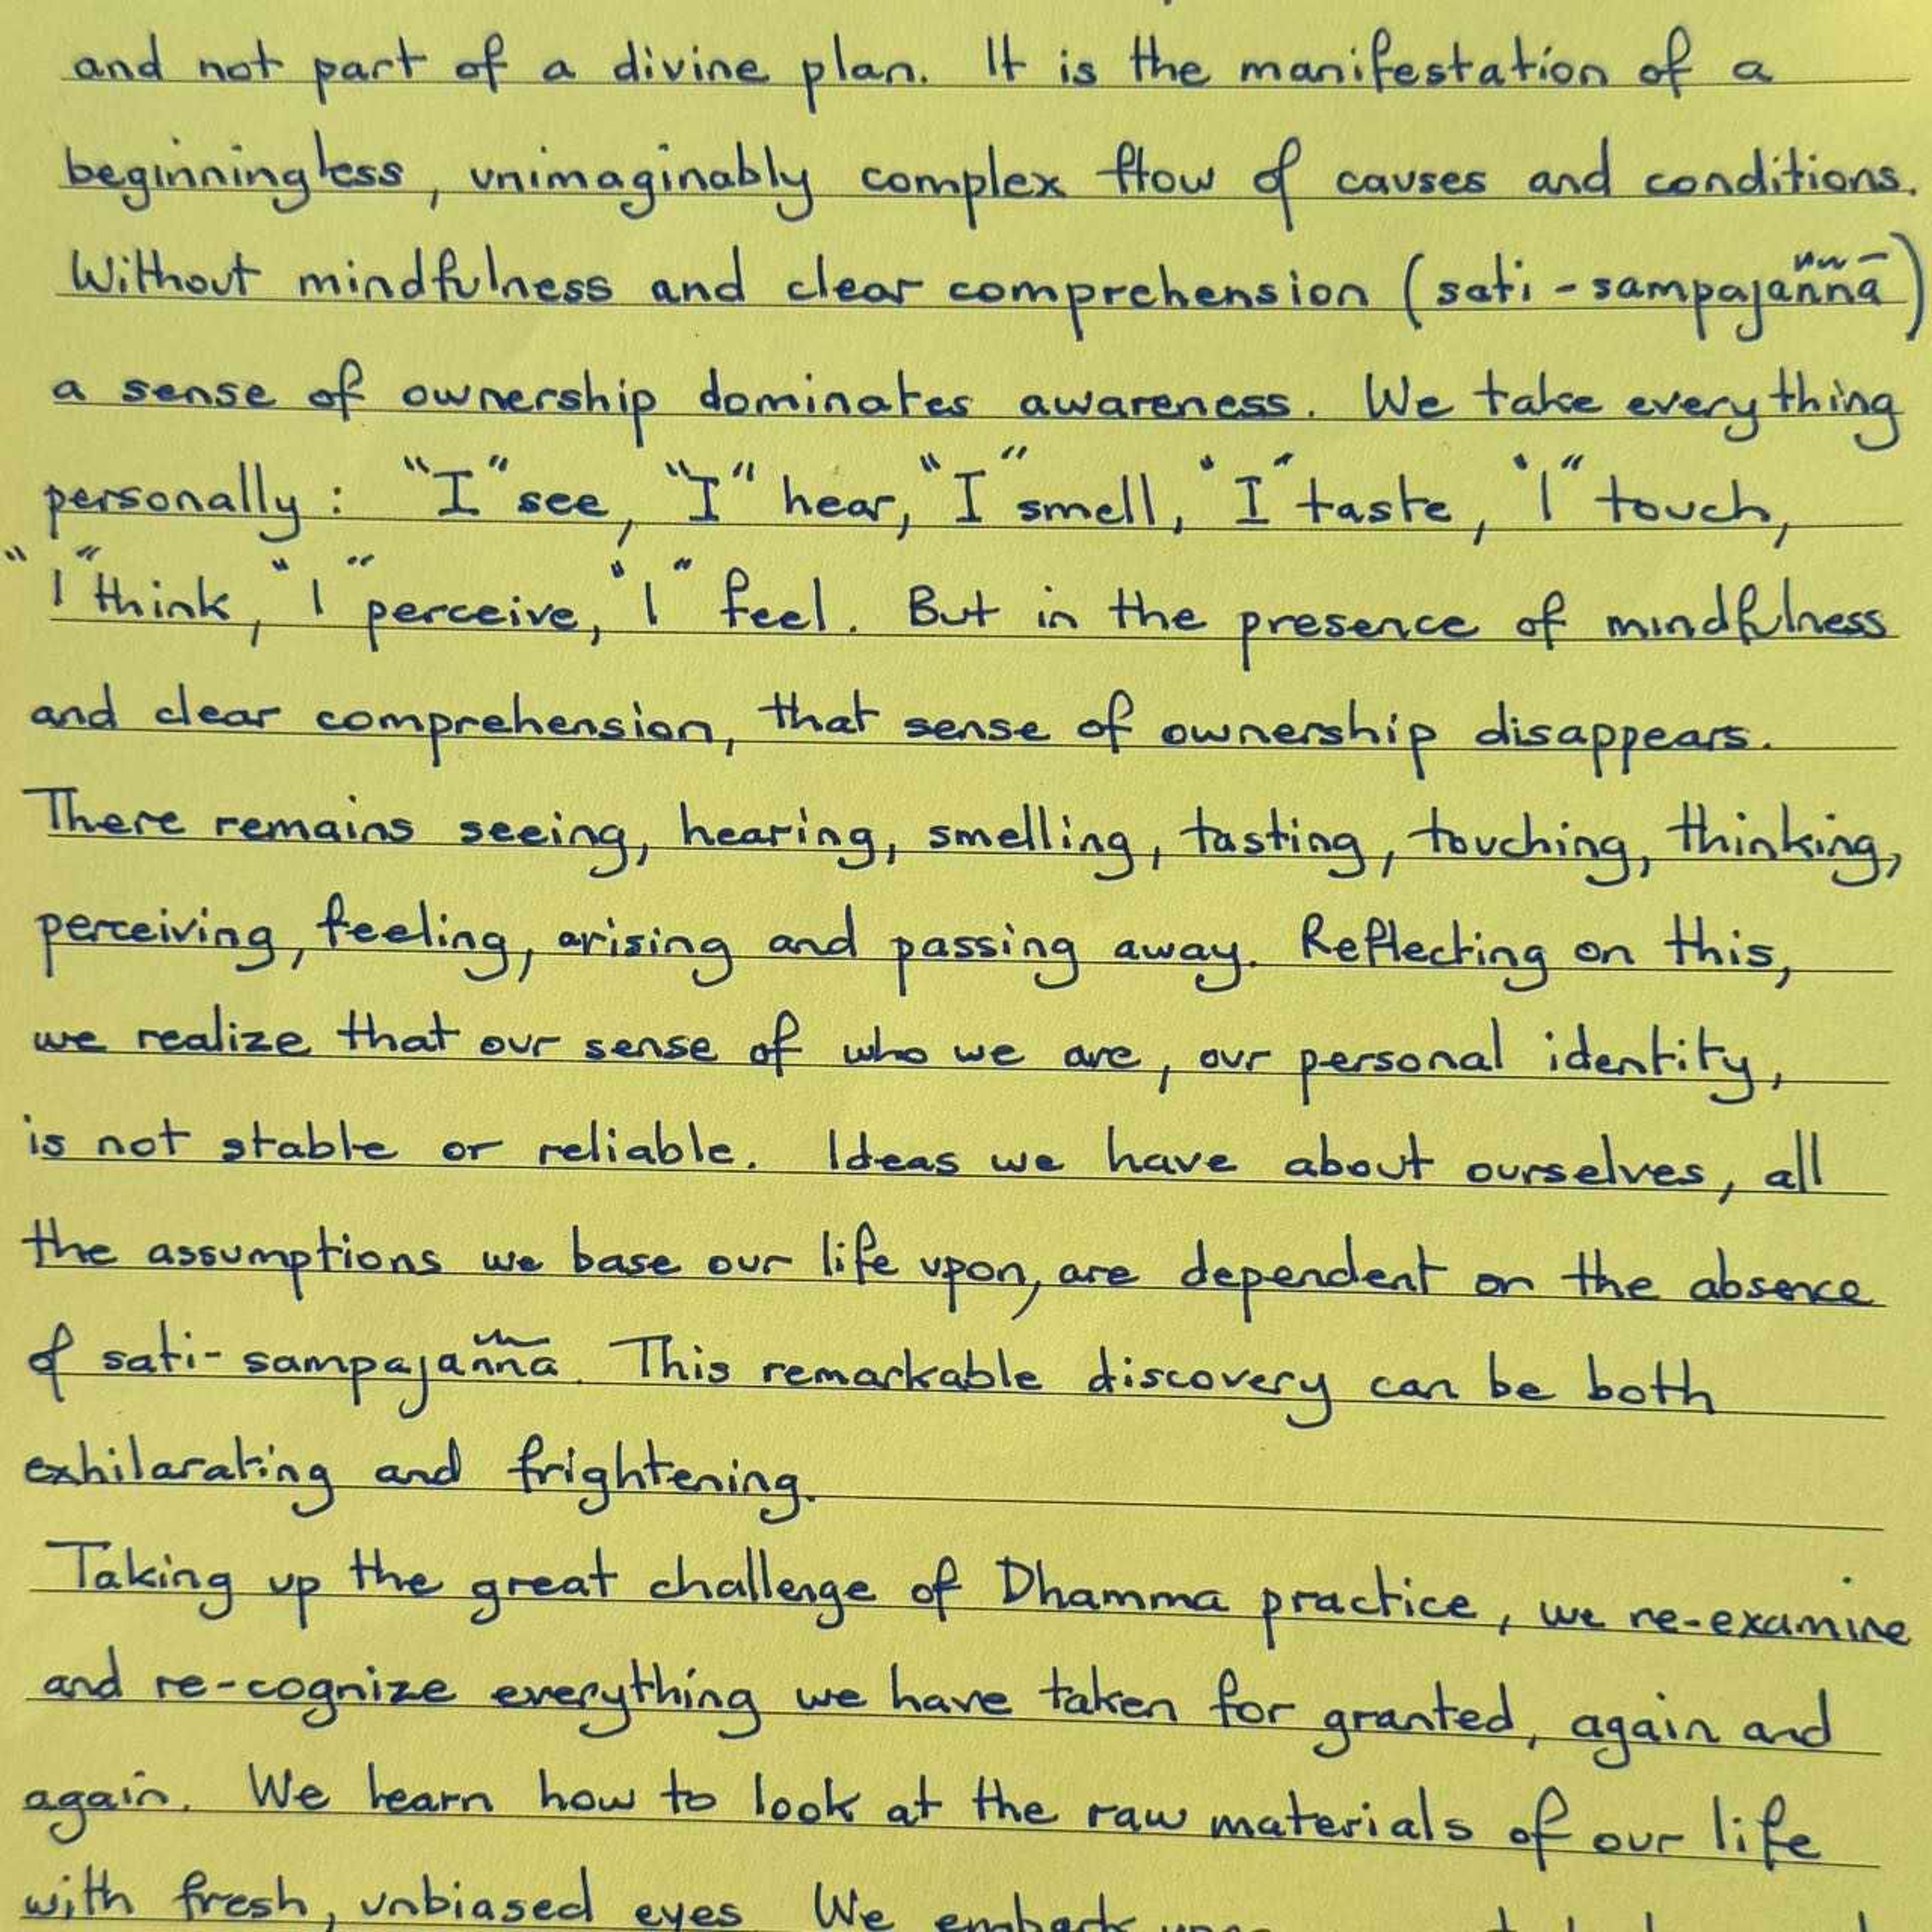 and not part of a divine plan. It is the manifestation of a
beginningless, unimaginably complex flow of causes and conditions.
Without mindfulness and clear comprehension (sati-sampajaññā)
a sense of ownership dominates awareness. We take everything
personally: "I" see, "I" hear, "I" smell, "I" taste, "I" touch,
"I" think, "I" perceive, "I" feel. But in the presence of mindfulness
and clear comprehension, that sense of ownership disappears.
There remains seeing, hearing, smelling, tasting, touching, thinking,
perceiving, feeling, arising and passing away. Reflecting on this,
we realize that our sense of who we are, our personal identity,
is not stable or reliable. Ideas we have about ourselves, all
the assumptions we base our life upon, are dependent on the absence
of sati-sampajañña. This remarkable discovery can be both
exhilarating and frightening.
Taking up the great challenge of Dhamma practice, we re-examine
and re-cognize everything we have taken for granted, again and
again. We learn how to look at the raw materials of our life
with fresh, unbiased eyes We embark